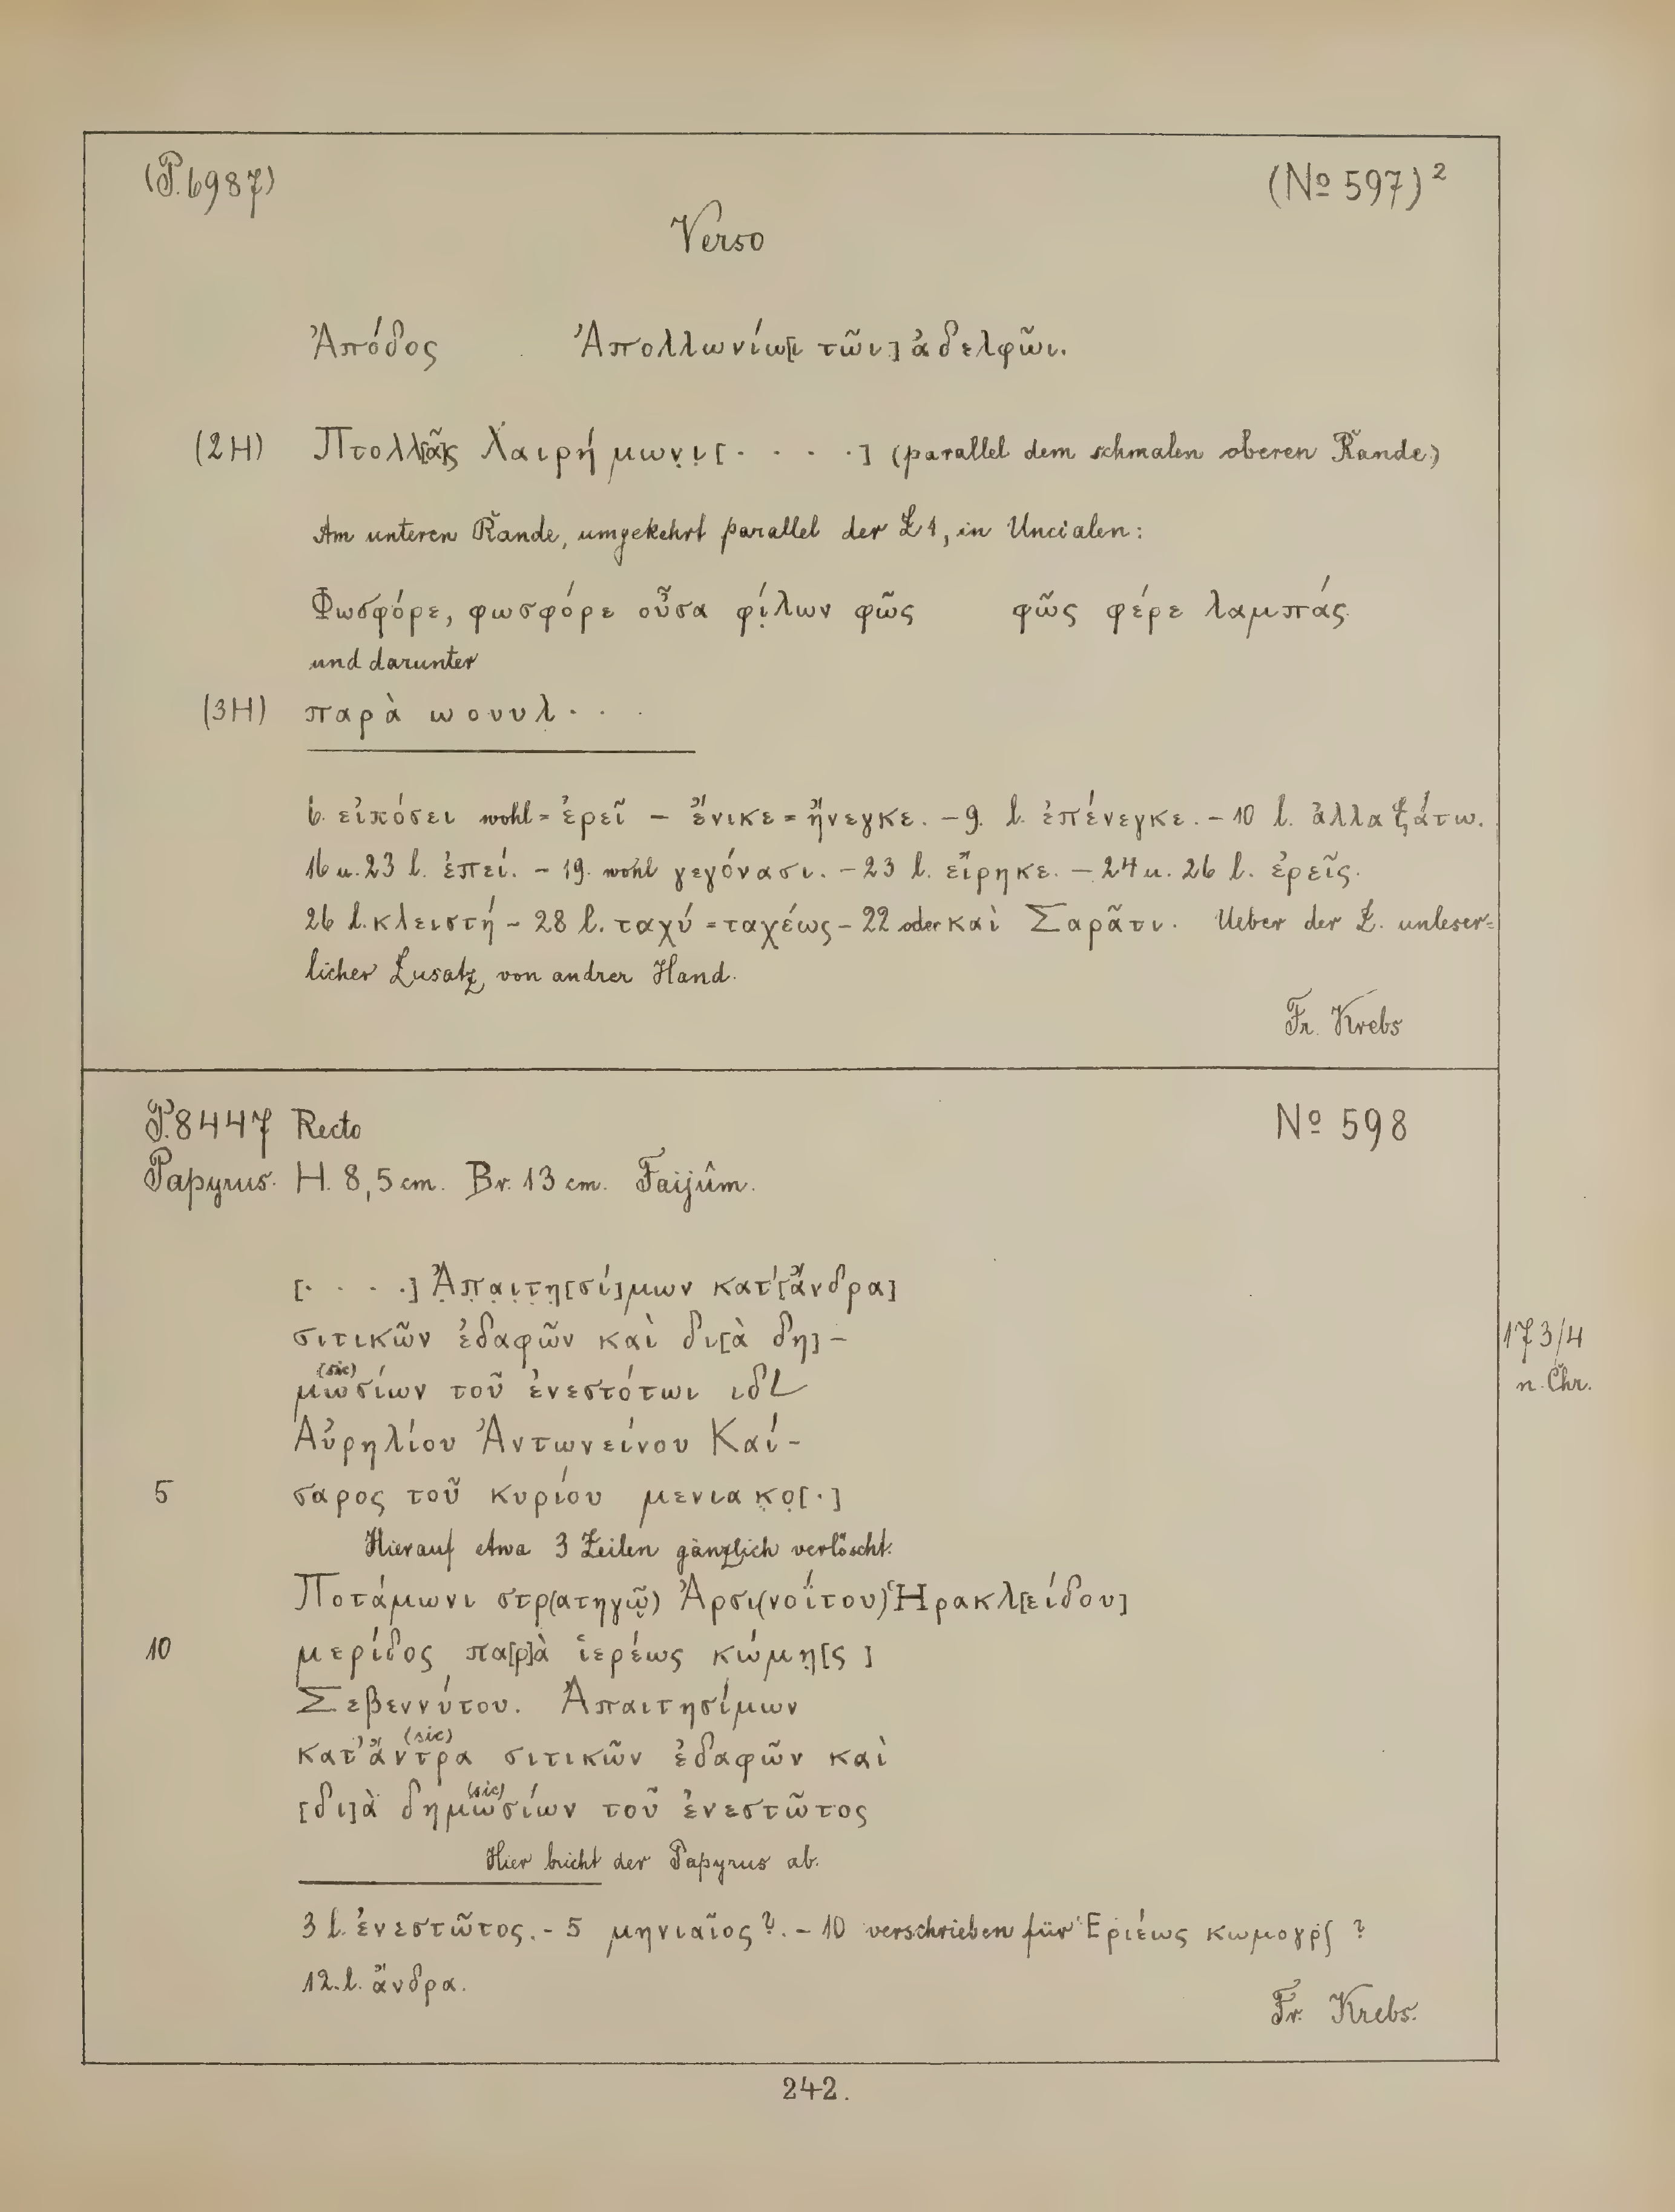 (P. 6987) (No 597)²
Verso
Ἀπόδος Ἀπολλωνίω[ι τῶι] ἀδελφῶι.
(2H) Πτολλ[ᾶ]ς Χαιρήμων̣ι̣[· · · ·] (parallel dem schmalen oberen Rande)
Am unteren Rande, umgekehrt parallel der Z 1, in Uncialen:
Φωσφόρε, φωσφόρε οὖσα φί̣λων φῶς φῶς φέρε λαμπάς.
und darunter
(3H) παρὰ ωουυλ̣ · · ·
6. εἰπόσει wohl = ἐρεῖ – ἔνικε = ἤνεγκε. – 9. l. ἐπένεγκε. – 10 l. ἀλλαξάτω.
16 u. 23 l. ἐπεί. – 19. wohl γεγόνασι. – 23 l. εἴρηκε. – 24 u. 26 l. ἐρεῖς.
26 l. κλειστή – 28 l. ταχύ = ταχέως – 22 oder καὶ Σαρᾶτι. Ueber der Z. unleser=
licher Zusatz von andrer Hand.
Fr. Krebs
P. 8447 Recto No 598
Papyrus. H. 8,5 cm. Br. 13 cm. Faijûm.
[· · · ·] Ἀ̣π̣α̣ι̣τ̣η̣[σί]μων κατ’ [ἄνδρα]
σιτικῶν ἐδαφῶν καὶ δι[ὰ δη] –
173/4
(sic)
μωσίων τοῦ ἐνεστότωι ιδL
n. Chr.
Αὐρηλίου Ἀντωνείνου Καί –
5 σαρος τοῦ κυρίου μενιακ̣ο̣[·]
Hierauf etwa 3 Zeilen gänzlich verlöscht.
Ποτάμωνι στρ(ατηγῷ) Ἀρσι(νοΐτου) Ἡρακλ[είδου]
10 μερίδος πα[ρ]ὰ ἱερέως κώμη̣[ς ]
Σεβεννύτου. Ἀπαιτησίμων
(sic)
κατ’ ἄντρα σιτικῶν ἐδαφῶν καὶ
(sic)
[δι]ὰ δημωσίων τοῦ ἐνεστῶτος
Hier bricht der Papyrus ab.
3 l. ἐνεστῶτος. – 5 μηνιαῖος ?. – 10 verschrieben für Ἑριέως κωμογρ∫ ?
12. l. ἄνδρα.
Fr. Krebs.
242.